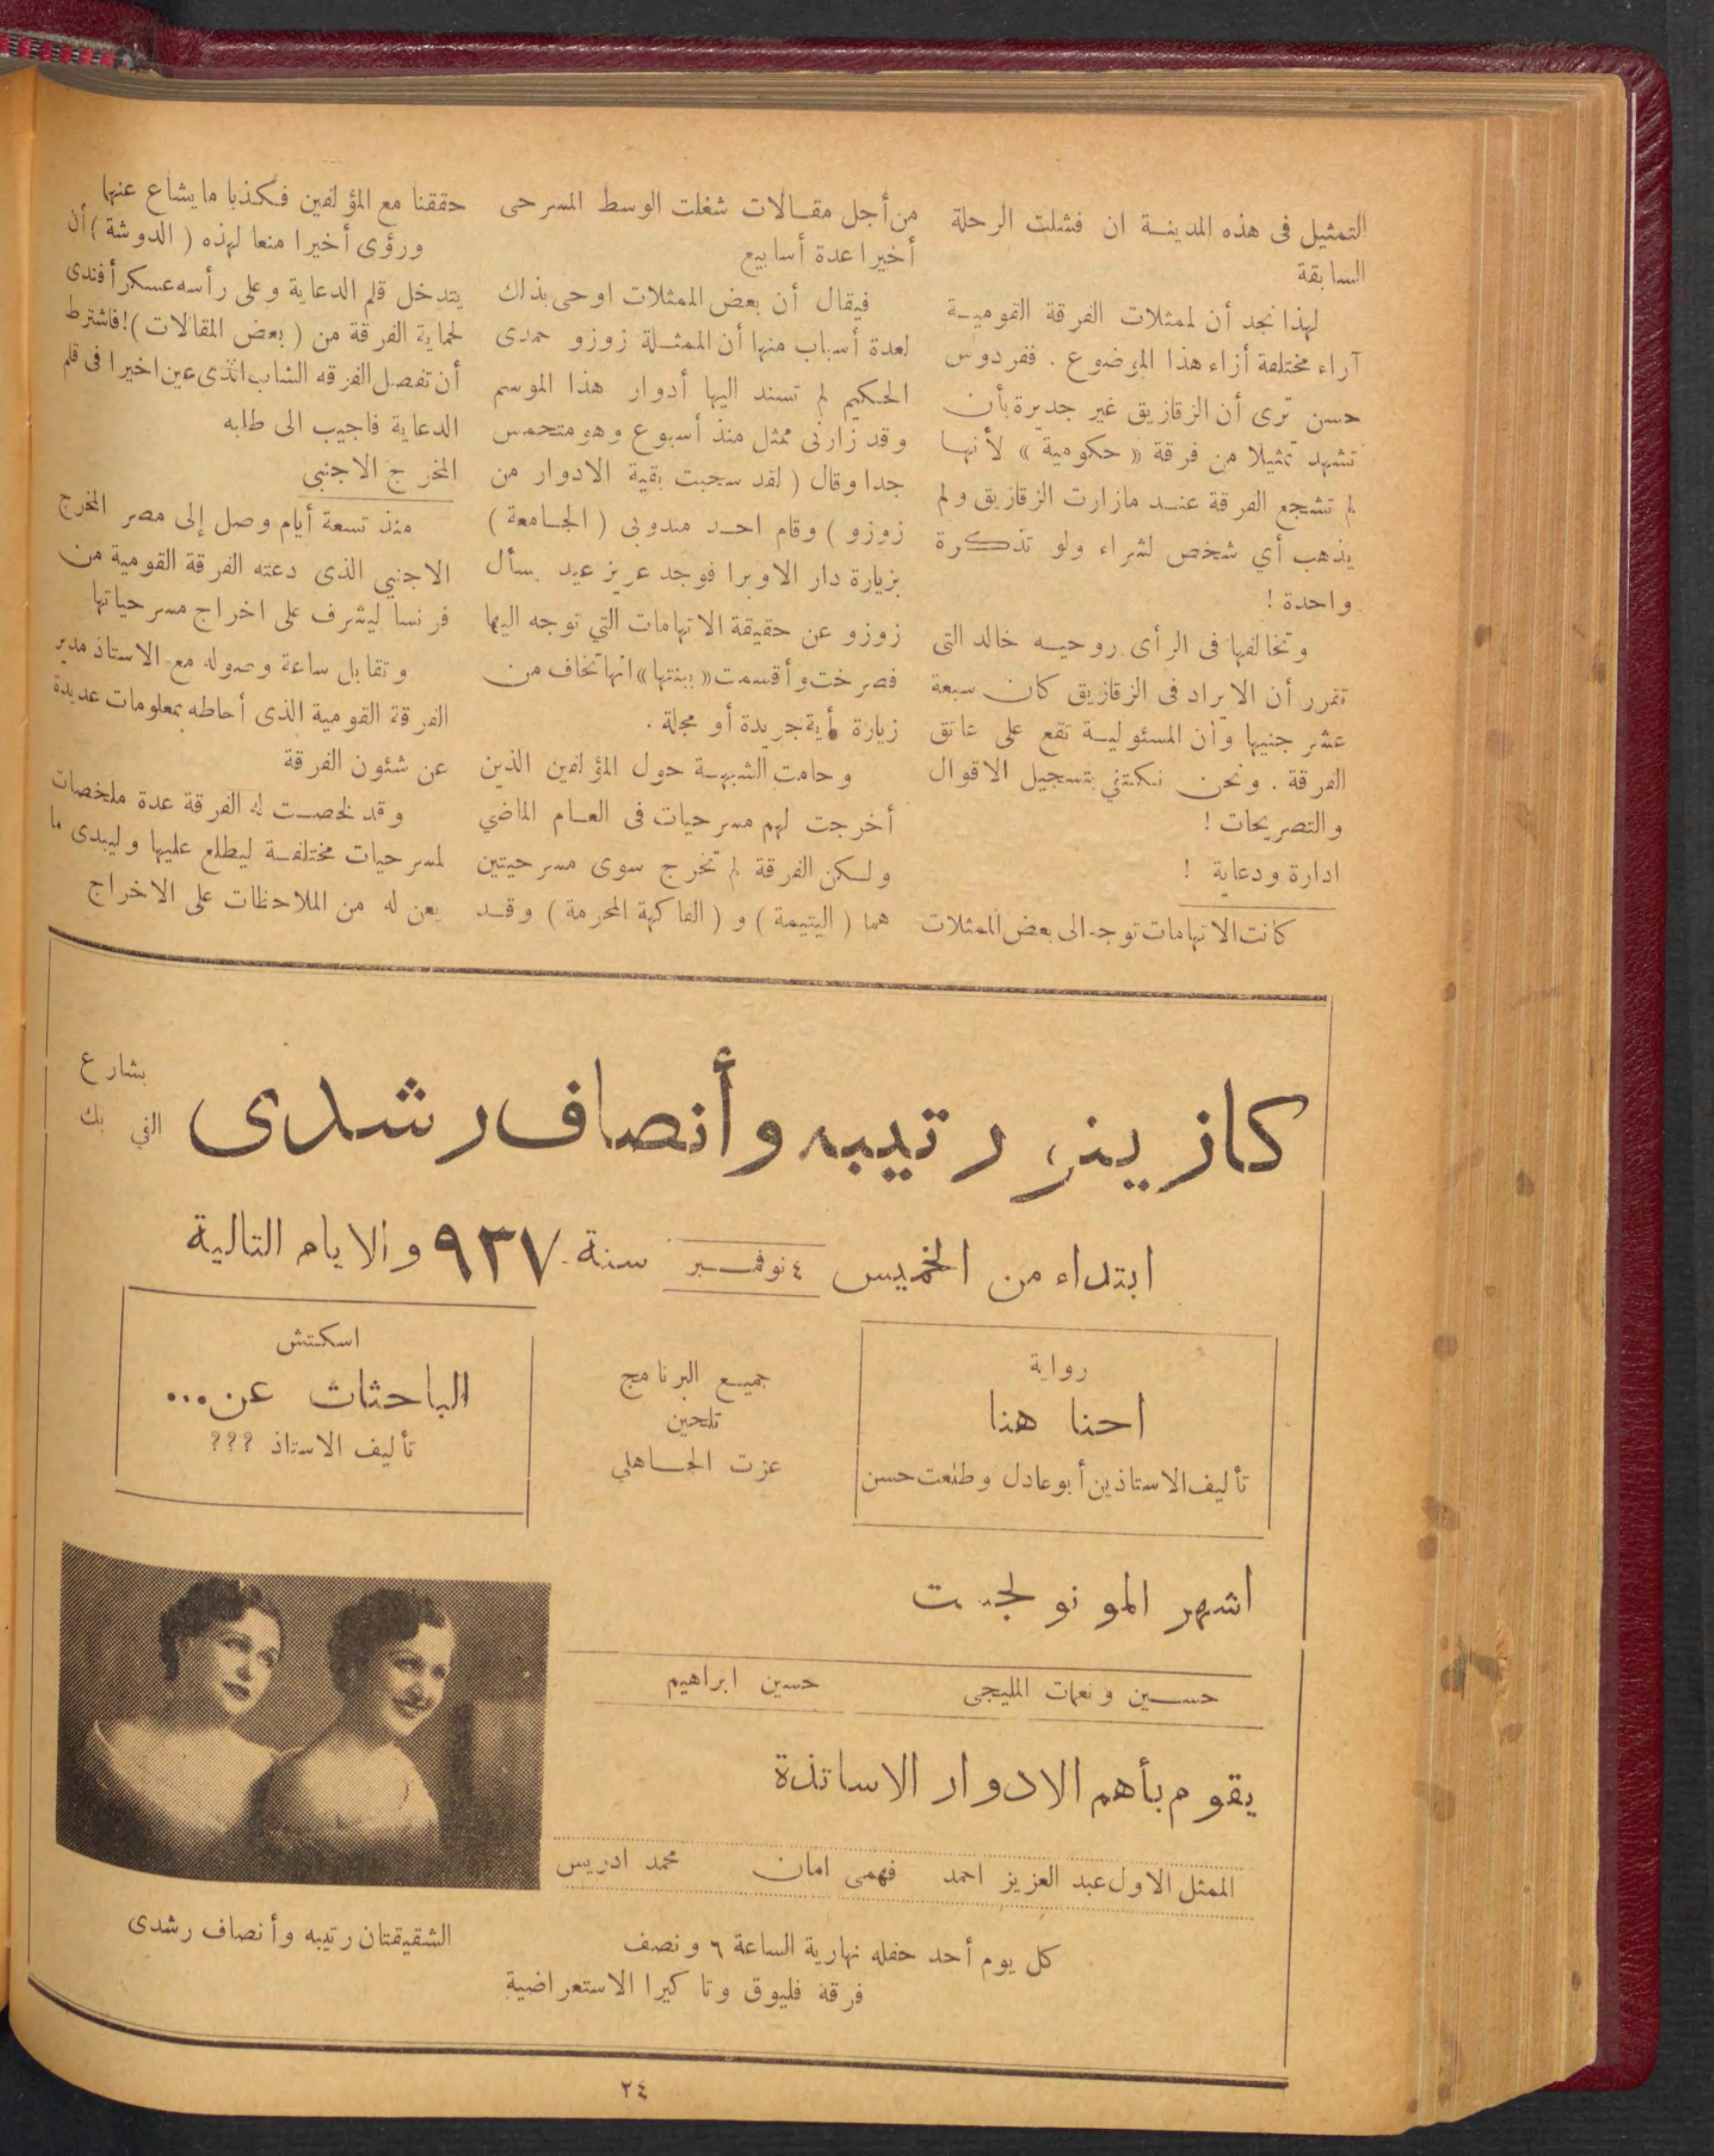 التمثيل فى هذه المدينـة ان فشلت الرحلة
السابقة
لهذا نجد أن لممثلات الفرقة القوميـة
آراء مختلفة أزاء هذا الموضوع . ففردوس
حسن ترى أن الزقازيق غير جديرة بأن
تشهد تمثيلا من فرقة « حكومية » لأنهـا
لم تشجع الفرقة عنـد مازارت الزقازيق ولم
يذهب أي شخص لشراء ولو تذكرة
واحدة !
وتخالفها فى الرأى روحيـه خالد التى
تقرر أن الايراد فى الزقازيق كان سبعة
عشر جنيها وأن المسئوليـة تقع على عاتق
الفرقة . ونحن نكتفي بتسجيل الاقوال
والتصريحات !
ادارة ودعاية !
كانت الاتهامات توجه الى بعض الممثلات
من أجل مقـالات شغلت الوسط المسرحى
أخيرا عدة أسابيع
فيقال أن بعض الممثلات اوحى بذلك
لعدة أسباب منها أن الممثـلة زوزو حمدى
الحكيم لم تسند اليها أدوار هذا الموسم
وقد زارنى ممثل منذ أسبوع وهو متحمس
جدا وقال ( لقد سحبت بقية الادوار من
زوزو ) وقام احـد مندوبى ( الجـامعة )
بزيارة دار الاوبرا فوجد عزيز عيد يسأل
زوزو عن حقيقة الاتهامات التي توجه اليها
فصرخت وأقسمت « ببنتها » انها تخاف من
زيارة أية جريدة أو مجلة .
وحامت الشبهـة حول المؤلفين الذين
أخرجت لهم مسرحيات فى العـام الماضي
ولـكن الفرقة لم تخرج سوى مسرحيتين
هما ( اليتيمة ) و ( الفاكهة المحرمة ) وقـد
حققنا مع المؤلفين فكذبا مايشاع عنها
ورؤى أخيرا منعا لهذه ( الدوشة ) أن
يتدخل قلم الدعاية وعلى رأسه عسكر أفندى
لحماية الفرقة من ( بعض المقالات )! فاشترط
أن تفصل الفرقه الشاب الذى عين اخيرا فى قلم
الدعاية فاجيب الى طلبه
المخرج الاجنبي
منذ تسعة أيام وصل إلى مصر المخرج
الاجنبي الذى دعته الفرقة القومية من
فرنسا ليشرف على اخراج مسرحياتها
وتقابل ساعة وصوله مع الاستاذ مدير
الفرقة القومية الذى أحاطه بمعلومات عديدة
عن شئون الفرقة
وقد لخصـت له الفرقة عدة ملخصات
لمسرحيات مختلفـة ليطلع عليها وليبدى ما
يعن له من الملاحظات على الاخراج
كازينو رتيبه وأنصاف رشدى
بشارع
الفي بك
ابتداء من الخميس ٤ نوفمـبر سنة ٩٣٧ والايام التالية
رواية
احنا هنا
تأليف الاستاذين أبو عادل وطلعت حسن
جميـع البرنامج
تلحين
عزت الجـاهلي
اسكتش
الباحثات عن...
تأليف الاستاذ ???
اشهر المونولجست
حسـين ونعمات المليجى
حسين ابراهيم
يقوم بأهم الادوار الاساتذة
الممثل الاول عبد العزيز احمد
فهمى امان
محمد ادريس
كل يوم أحد حفله نهارية الساعة ٦ ونصف
فرقة فليوق وتاكيرا الاستعراضية
الشقيقتان رتيبه وأنصاف رشدى
٢٤